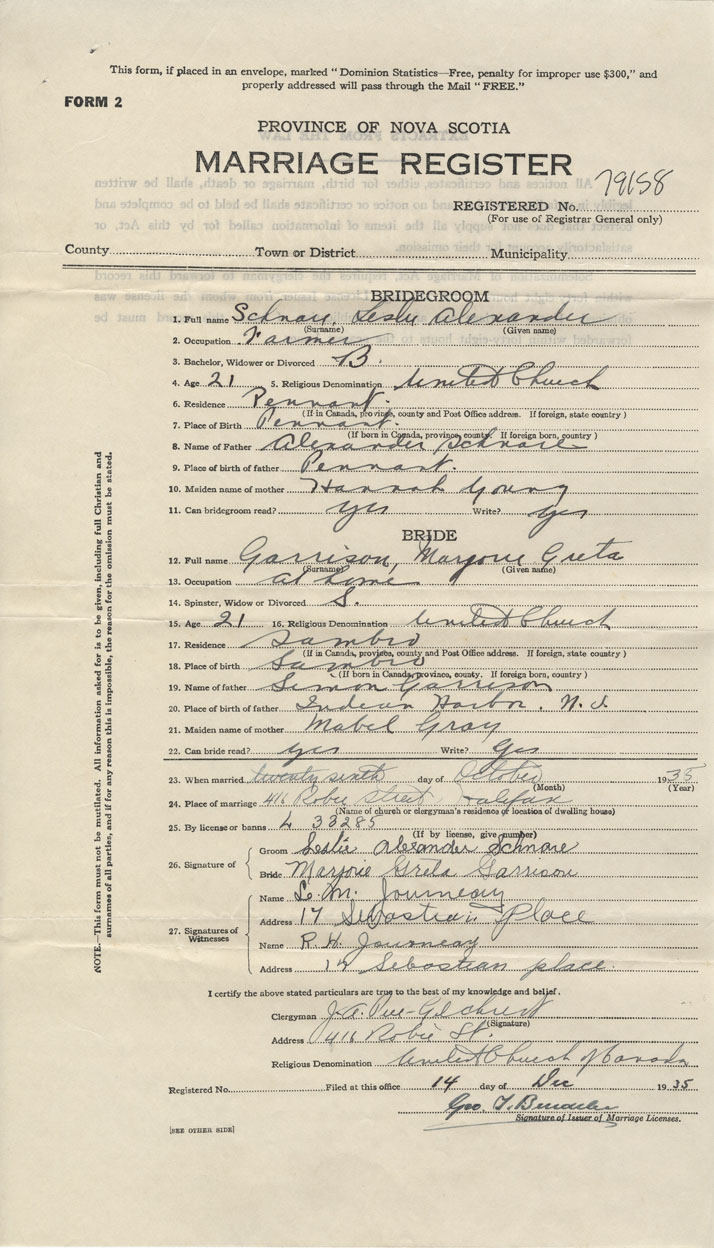 This form, if placed in an envelope, marked "Dominion Statistics—Free, penalty for improper use $300," and
properly addressed will pass through the Mail "FREE."
FORM 2
PROVINCE OF NOVA SCOTIA
MARRIAGE REGISTER
79158
REGISTERED No.
(For use of Registrar General only)
County Town or District Municipality
BRIDEGROOM
1. Full name Schnare, Leslie Alexander
(Surname) (Given name)
2. Occupation Farmer
3. Bachelor, Widower or Divorced B.
4. Age 21 5. Religious Denomination United Church
6. Residence Pennant.
(If in Canada, province, county and Post Office address. If foreign, state country)
7. Place of Birth Pennant.
(If born in Canada, province, county. If foreign born, country)
8. Name of Father Alexander Schnare
9. Place of birth of father Pennant.
10. Maiden name of mother Hannah Young
11. Can bridegroom read? yes Write? yes
BRIDE
12. Full name Garrison, Marjorie Greta
(Surname) (Given name)
13. Occupation at home
14. Spinster, Widow or Divorced S.
15. Age 21 16. Religious Denomination United Church
17. Residence Sambro
(If in Canada, province, county and Post Office address. If foreign, state country)
18. Place of birth Sambro
(If born in Canada, province, county. If foreign born, country)
19. Name of father Simon Garrison
20. Place of birth of father Indian Harbor. N.S.
21. Maiden name of mother Mabel Gray
22. Can bride read? yes Write? yes
23. When married twenty sixth day of October 1935
(Month) (Year)
24. Place of marriage 416 Robie Street Halifax
(Name of church or clergyman's residence or location of dwelling house)
25. By license or banns L 33285
(If by license, give number)
26. Signature of
Groom Leslie Alexander Schnare
Bride Marjorie Greta Garrison
27. Signatures of Witnesses
Name L. M. Journeay
Address 17 Sebastian Place
Name R. H. Journeay
Address 17 Sebastian place.
I certify the above stated particulars are true to the best of my knowledge and belief.
Clergyman J. A. Gilchrist
(Signature)
Address 416 Robie St.
Religious Denomination United Church of Canada
Registered No. Filed at this office 14 day of Dec 1935
Geo. T.
Signature of Issuer of Marriage Licenses.
[SEE OTHER SIDE]
NOTE.—This form must not be mutilated. All information asked for is to be given, including full Christian and
surnames of all parties, and if for any reason this is impossible, the reason for the omission must be stated.